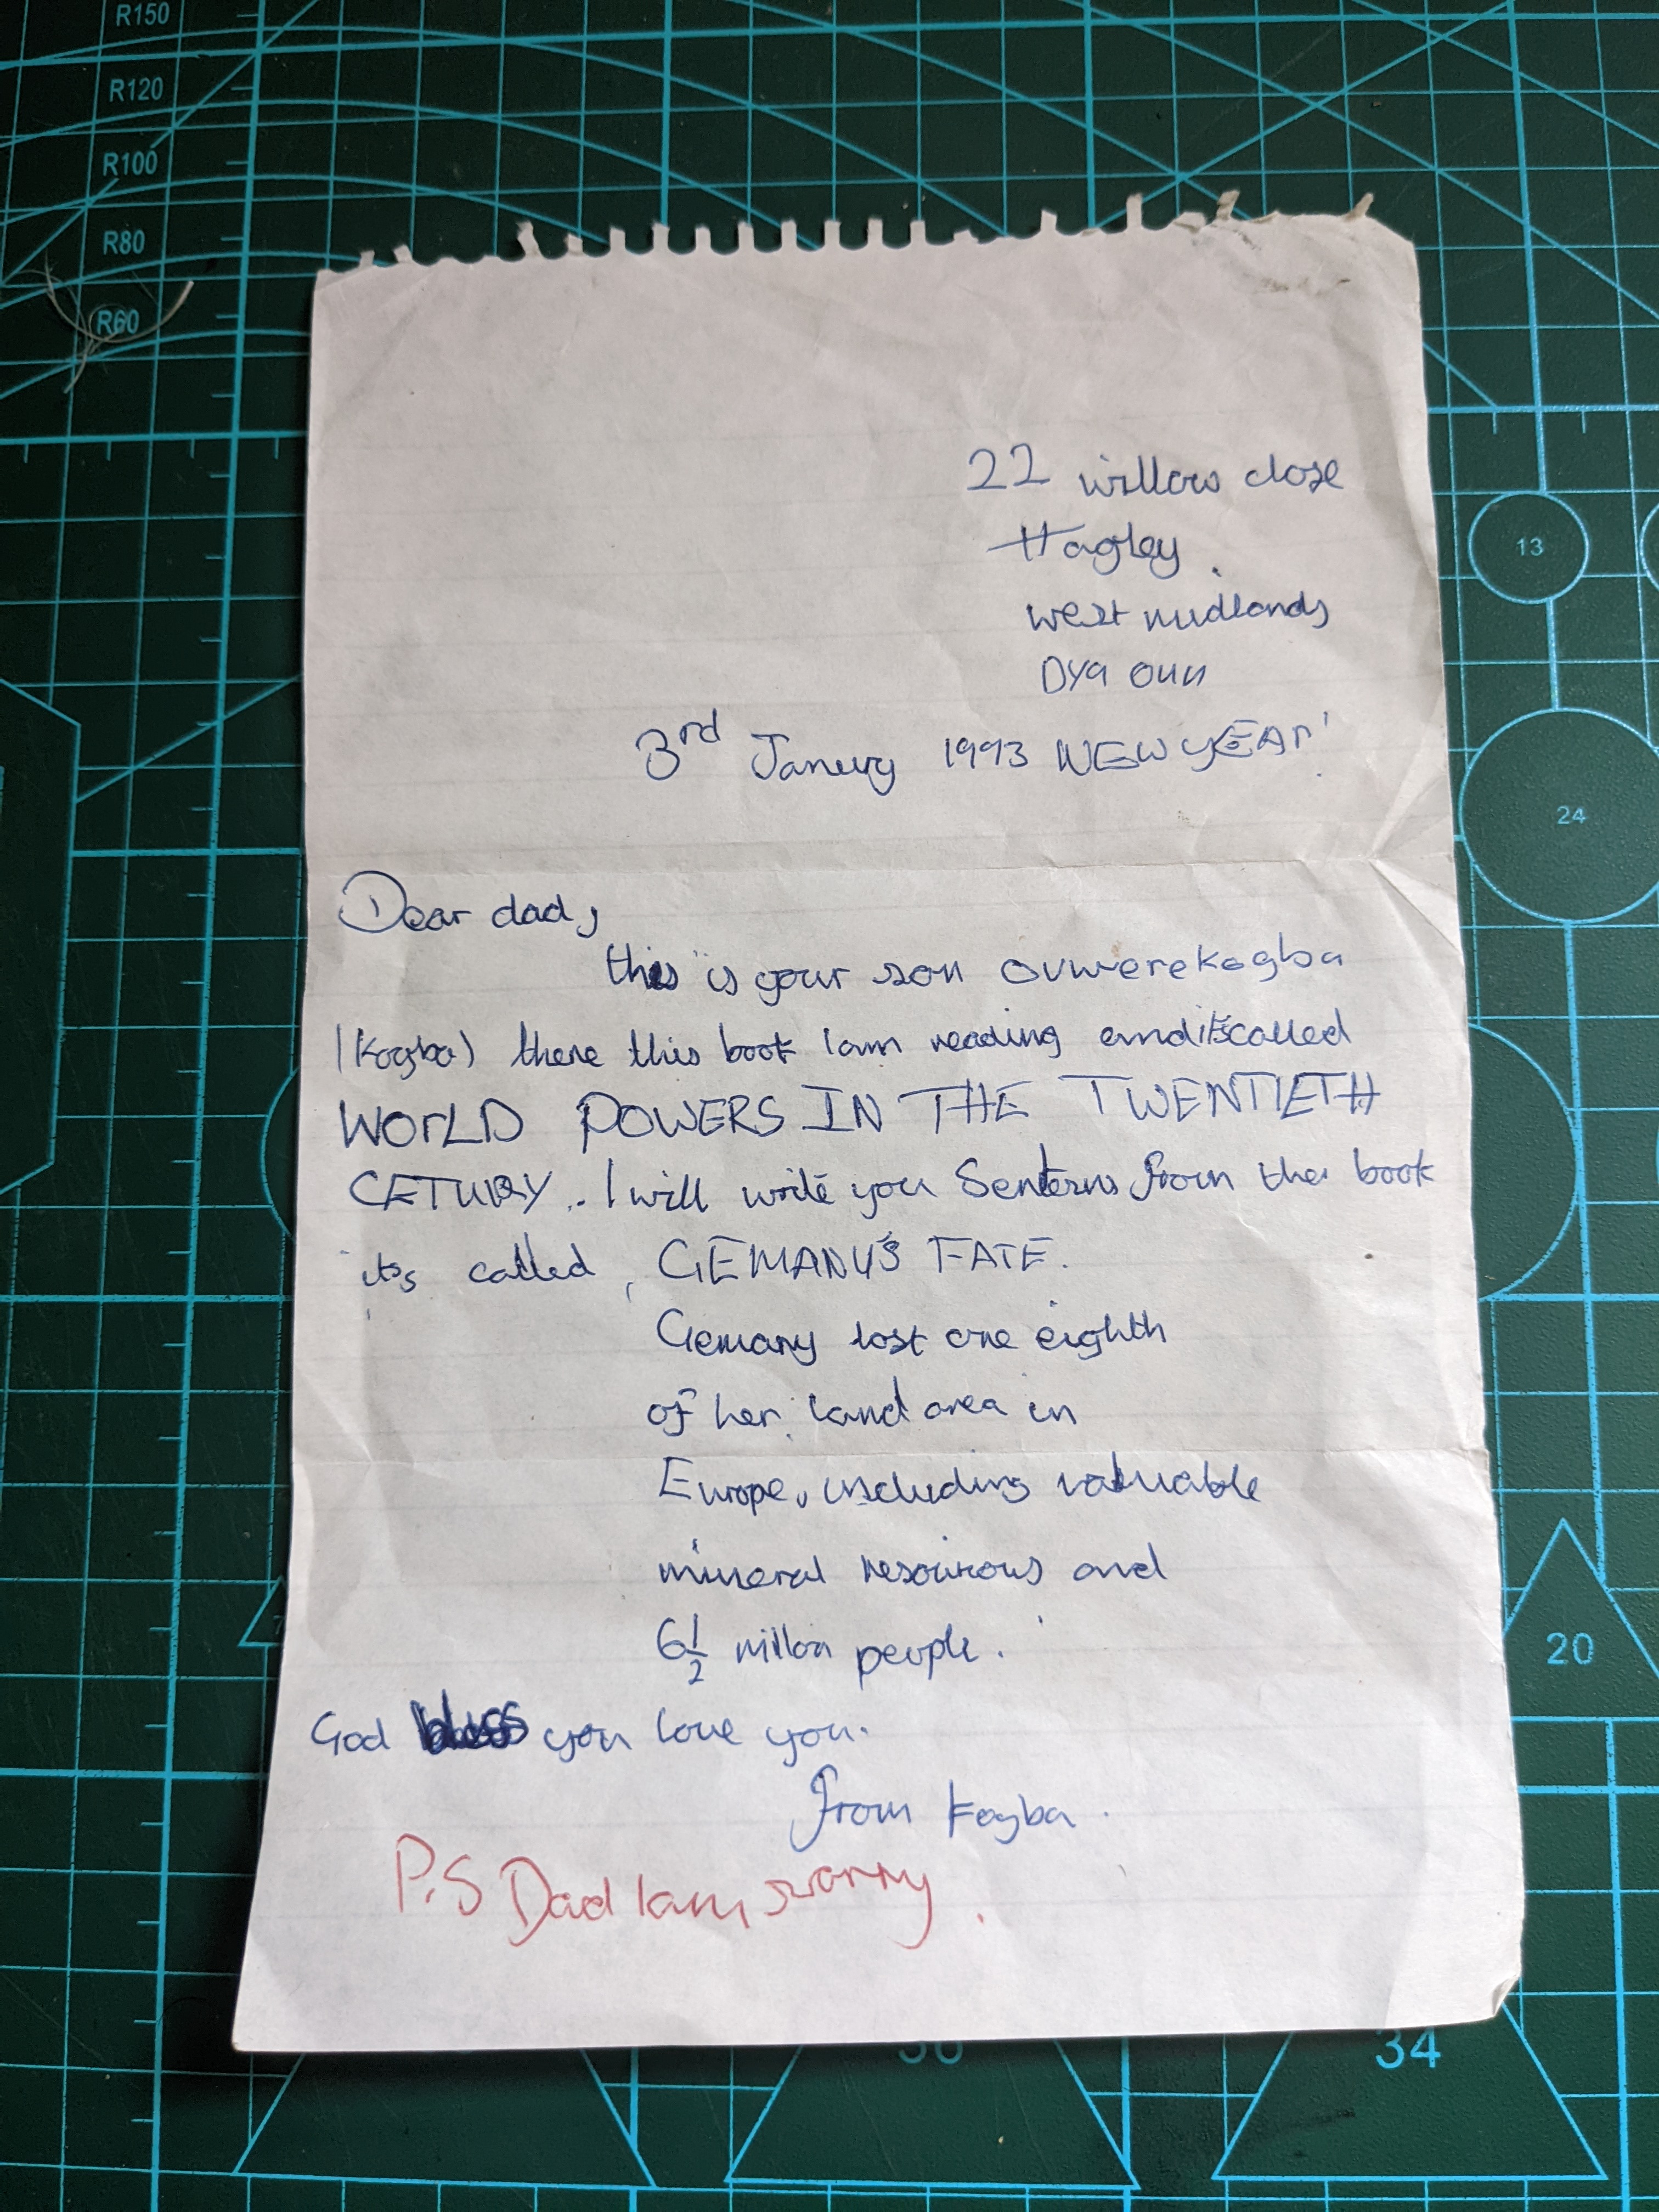 R150
R120
R100
R80
R60
13
24
20
34
22 willow close
Hagley
west midlands
DY9
3rd Janury 1993 NEW YEAR!
Dear dad,
this is your son ovwerekogba
(Kogba) there this book I am reading and it's called
WORLD POWERS IN THE TWENTIETH
CETURY. I will write you from the book
it's called, GEMANY'S FATE.
Gemany lost one eighth
of her land area in
Europe, including valuable
mineral and
6½ million people.
God bless you love you.
from Kogba.
P.S Dad I am sworry.